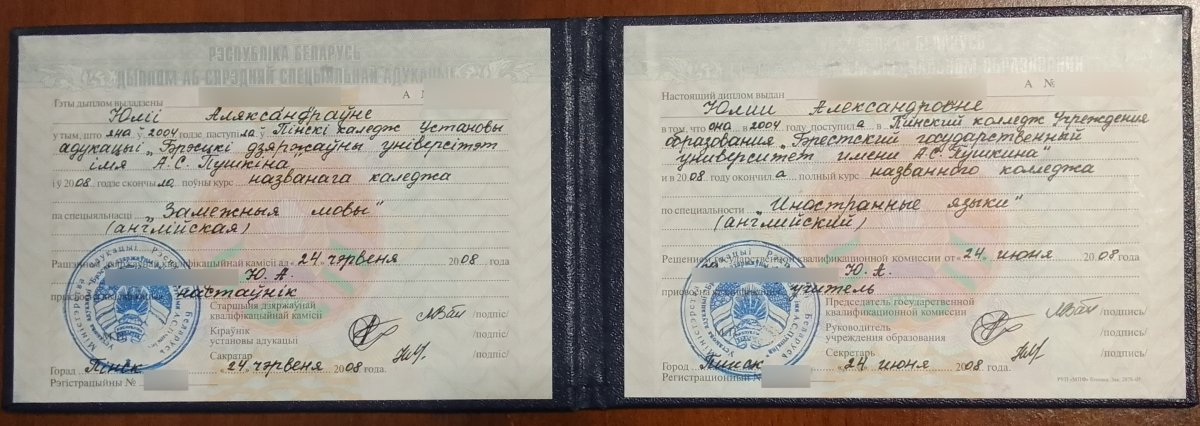 РЭСПУБЛІКА БЕЛАРУСЬ
ДЫПЛОМ АБ СЯРЭДНЯЙ СПЕЦЫЯЛЬНАЙ АДУКАЦЫІ
Гэты дыплом выдадзены
А
Юліі Аляксандраўне
у тым, што яна ў 2004 годзе паступіла ў Пінскі каледж Установы
адукацыі „Брэсцкі дзяржаўны універсітэт
імя А.С. Пушкіна"
і ў 2008 годзе скончыла поўны курс названага каледжа
па спецыяльнасці „Замежныя мовы"
(английская)
Рашэннем дзяржаўнай кваліфікацыйнай камісіі ад «24» чэрвеня 2008 года
Ю. А.
прысвоена кваліфікацыя настаўнік
Старшыня дзяржаўнай
кваліфікацыйнай камісіі /подпіс/
Кіраўнік
установы адукацыі /подпіс/
Сакратар /подпіс/
Город Пінск «24» чэрвеня 2008 года.
Рэгістрацыйны №
БЕЛАРУСЬ
Настоящий диплом выдан
А №
Юлии Александровне
в том, что она в 2004 году поступила в Пинский колледж Учреждения
образования „Брестский государственный
университет имени А.С. Пушкина"
и в 2008 году окончила полный курс названного колледжа
по специальности „Иностранные языки"
(английский)
Решением государственной квалификационной комиссии от «24» июня 2008 года
Ю. А.
присвоена квалификация учитель
Председатель государственной
квалификационной комиссии /подпись/
Руководитель
учреждения образования /подпись/
Секретарь /подпись/
Город Пинск «24» июня 2008 года.
Регистрационный №